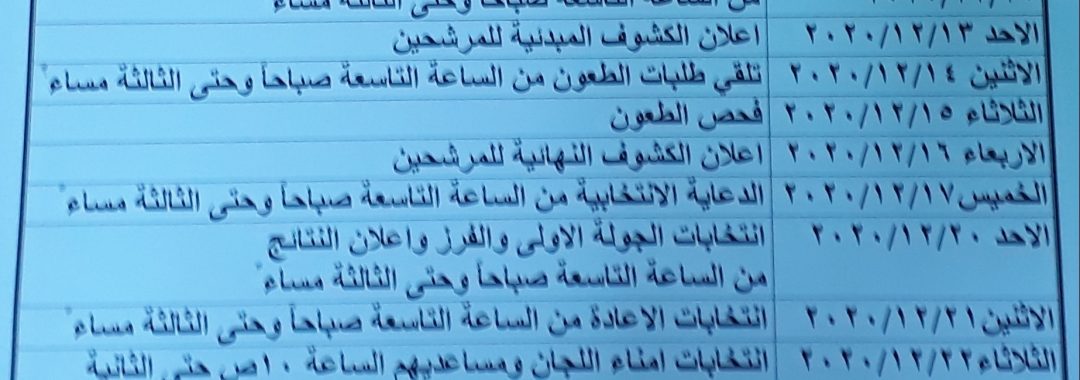 من الساعة التاسعة صباحاً وحتى الثالثة مساءً
الاحد ٢٠٢٠/١٢/١٣ اعلان الكشوف المبدئية للمرشحين
الاثنين ٢٠٢٠/١٢/١٤ تلقي طلبات الطعون من الساعة التاسعة صباحاً وحتى الثالثة مساءً
الثلاثاء ٢٠٢٠/١٢/١٥ فحص الطعون
الاربعاء ٢٠٢٠/١٢/١٦ اعلان الكشوف النهائية للمرشحين
الخميس ٢٠٢٠/١٢/١٧ الدعاية الانتخابية من الساعة التاسعة صباحاً وحتى الثالثة مساءً
الاحد ٢٠٢٠/١٢/٢٠ انتخابات الجولة الاولى والفرز واعلان النتائج
من الساعة التاسعة صباحاً وحتى الثالثة مساءً
الاثنين ٢٠٢٠/١٢/٢١ انتخابات الاعادة من الساعة التاسعة صباحاً وحتى الثالثة مساءً
الثلاثاء ٢٠٢٠/١٢/٢٢ انتخابات امناء اللجان ومساعديهم الساعة ١٠ص حتى الثانية